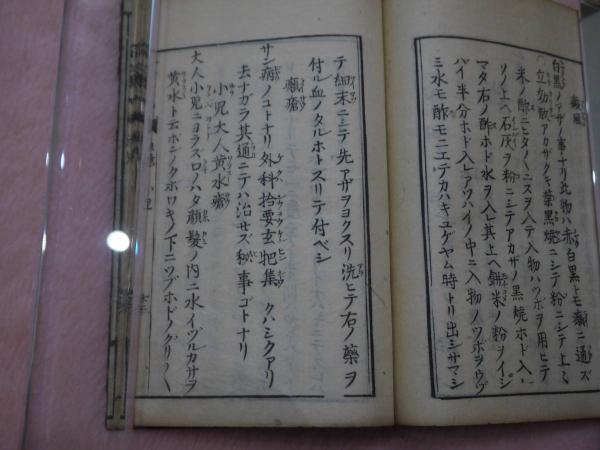 癜風
白黒ノアザノ事ナリ此物ハ赤白黒トモ癜ニ通ズ
立功散アカザクキ葉黒焼ニシテ粉ニシテ上々
米ノ酢ニヒタヒタニスヲ入テ入物ハツボヲ用ヒテ
ソノ上ヘ石灰ヲ粉ニシテアカザノ黒焼ホド入
マタ右ノ酢ホド水ヲ入レ其上ヘ餅米ノ粉ヲイシ
バイ半分ホド入レアツハイノ中ニ入物ノツボヲウヅ
ミ水モ酢モニエテカハキユゲヤム時トリ出シサマシ
テ細末ニシテ先アザヲヨクスリ洗ヒテ右ノ藥ヲ
付ル血ノタルホトスリテ付ベシ
癩瘡
サシ癩ノコトナリ外科拾要玄杷集クハシクアリ
去ナガラ其通ニテハ治セズ秘事ゴトナリ
小児大人黄水瘡
大人小児ニヨラズロハタ顔髪ノ内ニ水イヅルカサヲ
黄水ト云ホシノクホワキノ下ニツブホドノグリグリ